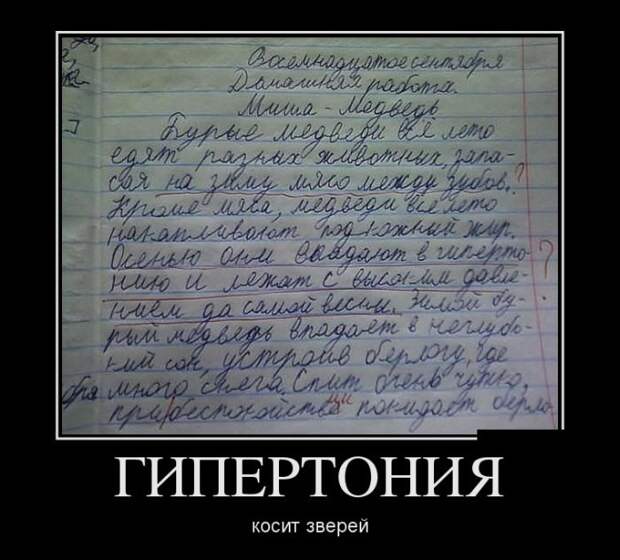 Восемнадцатое сентября
Домашняя работа.
Миша - Медведь
Бурые медведи всё лето
едят разных животных, запа-
сая на зиму мясо между зубов. ?
Кроме мяса, медведи всё лето
накапливают подкожный жир.
Осенью они впадают в гиперто-
нию и лежат с высоким давле- ?
нием до самой весны. Зимой бу-
рый медведь впадает в неглубо-
кий сон, устроив берлогу, где
много снега. Спит очень чутко,
при беспокойстве покидает берло-
ГИПЕРТОНИЯ
косит зверей